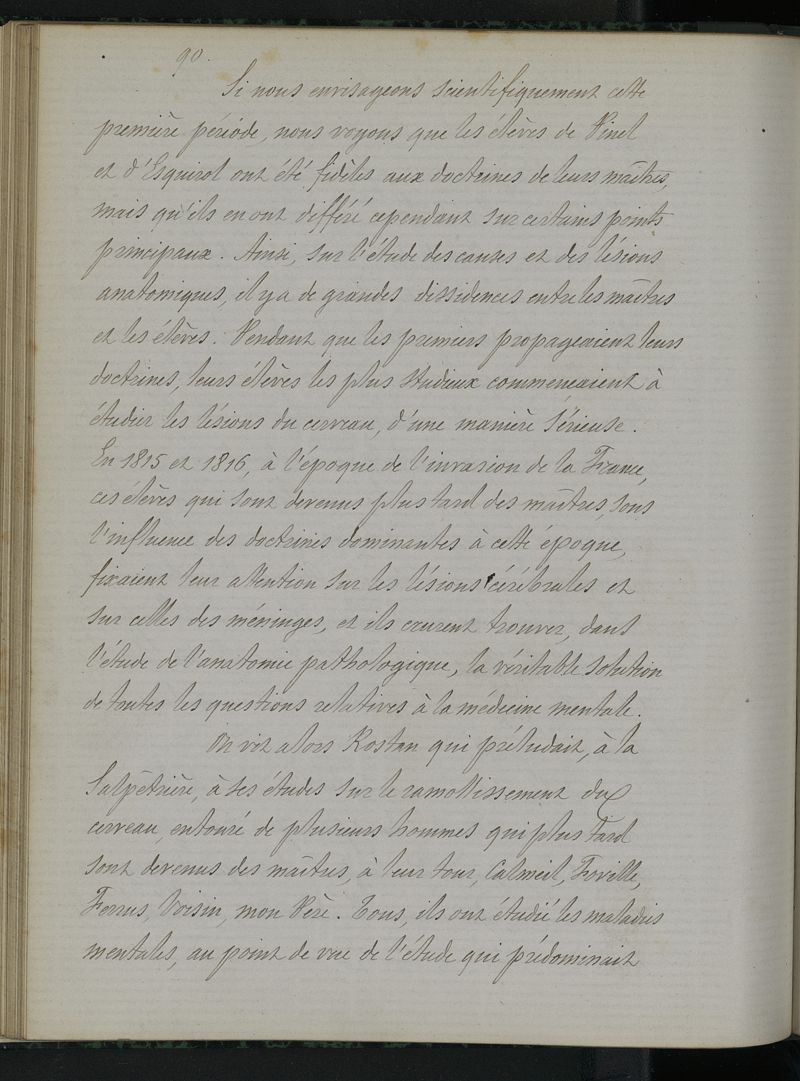 90.
Si nous envisageons scientifiquement cette
première période, nous voyons que les élèves de Pinel
et d'Esquirol ont été fidèles aux doctrines de leurs maîtres,
mais qu'ils en ont différé cependant sur certains points
principaux. Ainsi, sur l'étude des causes et des lésions
anatomiques, il y a de grandes dissidences entre les maîtres
et les élèves. Pendant que les premiers propageaient leurs
doctrines, leurs élèves les plus studieux commençaient à
étudier les lésions du cerveau, d'une manière sérieuse.
En 1815 et 1816, à l'époque de l'invasion de la France,
ces élèves qui sont devenus plus tard des maîtres, sous
l'influence des doctrines dominantes à cette époque,
fixaient leur attention sur les lésions cérébrales et
sur celles des méninges, et ils crurent trouver, dans
l'étude de l'anatomie pathologique, la véritable solution
de toutes les questions relatives à la médecine mentale.
On vit alors Rostan qui préludait, à la
Salpêtrière, à ses études sur le ramollissement du
cerveau, entouré de plusieurs hommes qui plus tard
sont devenus des maîtres, à leur tour, Calmeil, Foville,
Ferrus, Voisin, mon Père. Tous, ils ont étudié les maladies
mentales, au point de vue de l'étude qui prédominait